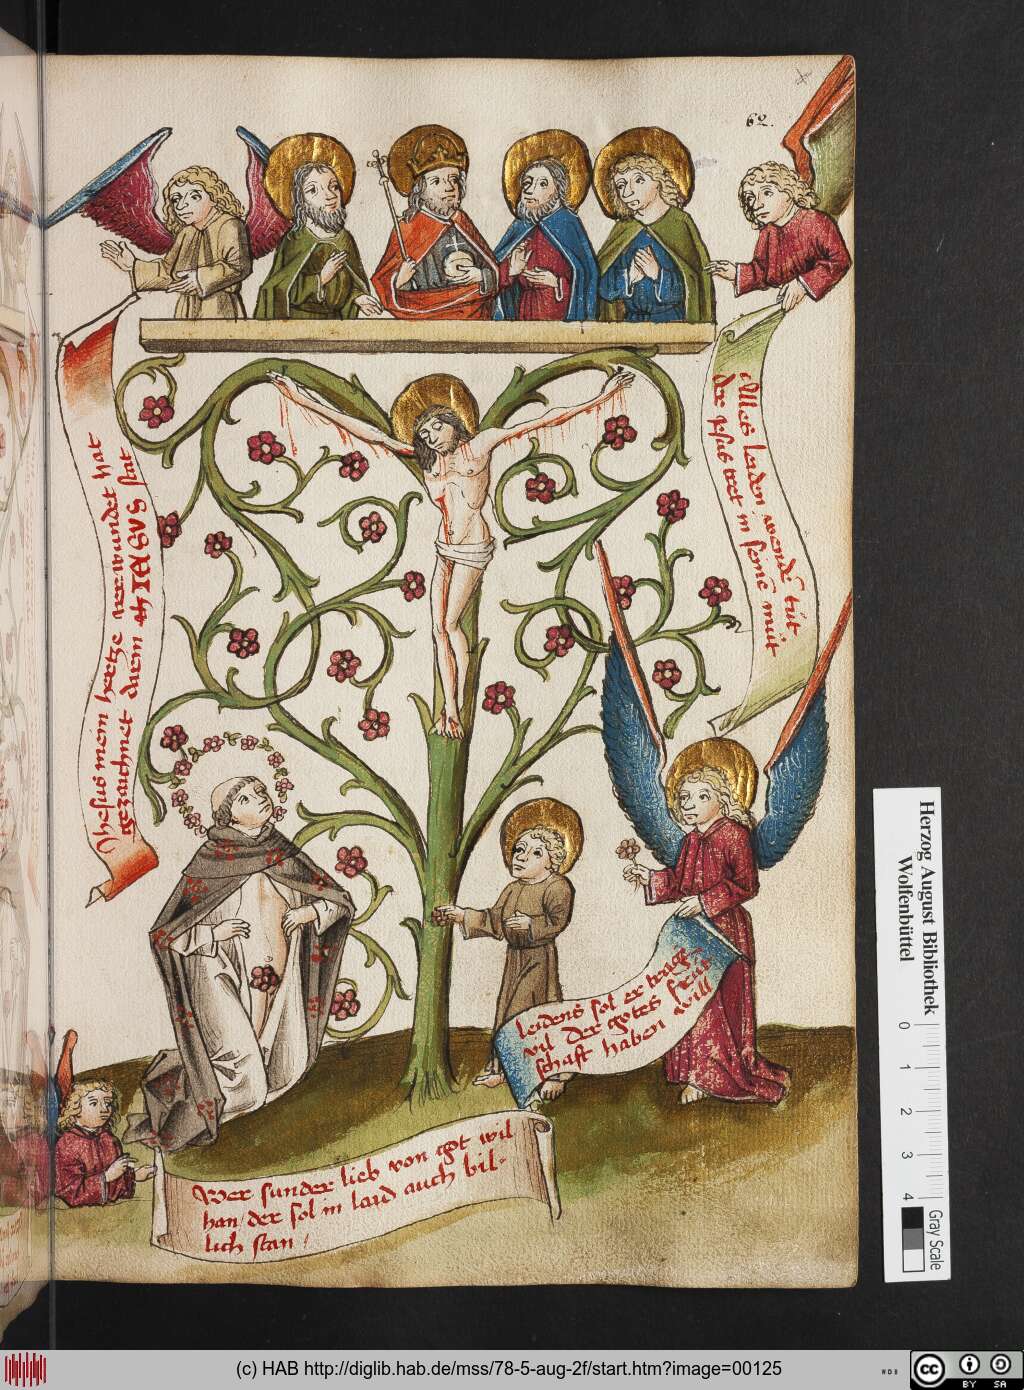 62.
Jhesus mein hertze verwundet hat
gezaichnet darein IHESVS stat
Alles leiden wendē tůt
der jhesus tret in seinē můt
leidens sol er trage
vil der gotes frűt
schaft haben will
Wer sunder lieb von got wil
han / der sol in laid auch bil-
lich stan /
Herzog August Bibliothek
Wolfenbüttel
0 1 2 3 4
Gray Scale
(c) HAB http://diglib.hab.de/mss/78-5-aug-2f/start.htm?image=00125
WDB
cc
BY SA